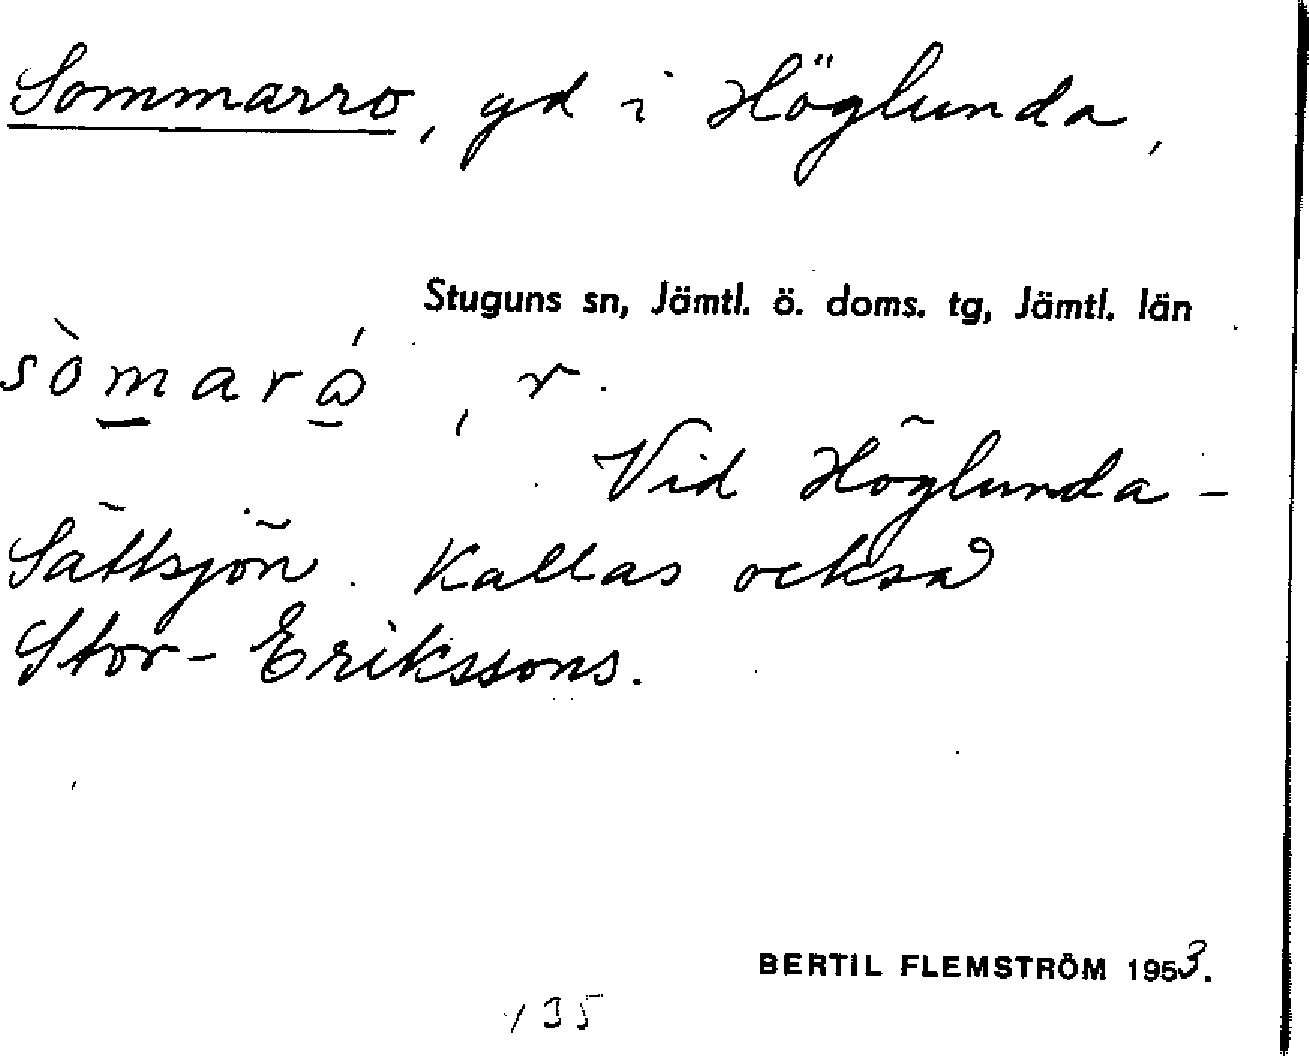 Sommarro, gd i Höglunda,
Stuguns sn, Jämtl. ö. doms. tg, Jämtl. län
sòm̲arɷ̲́, r.
Vid Höglunda-
Sättsjön. Kallas också
Stor-Erikssons.
BERTIL FLEMSTRÖM 1953.
135